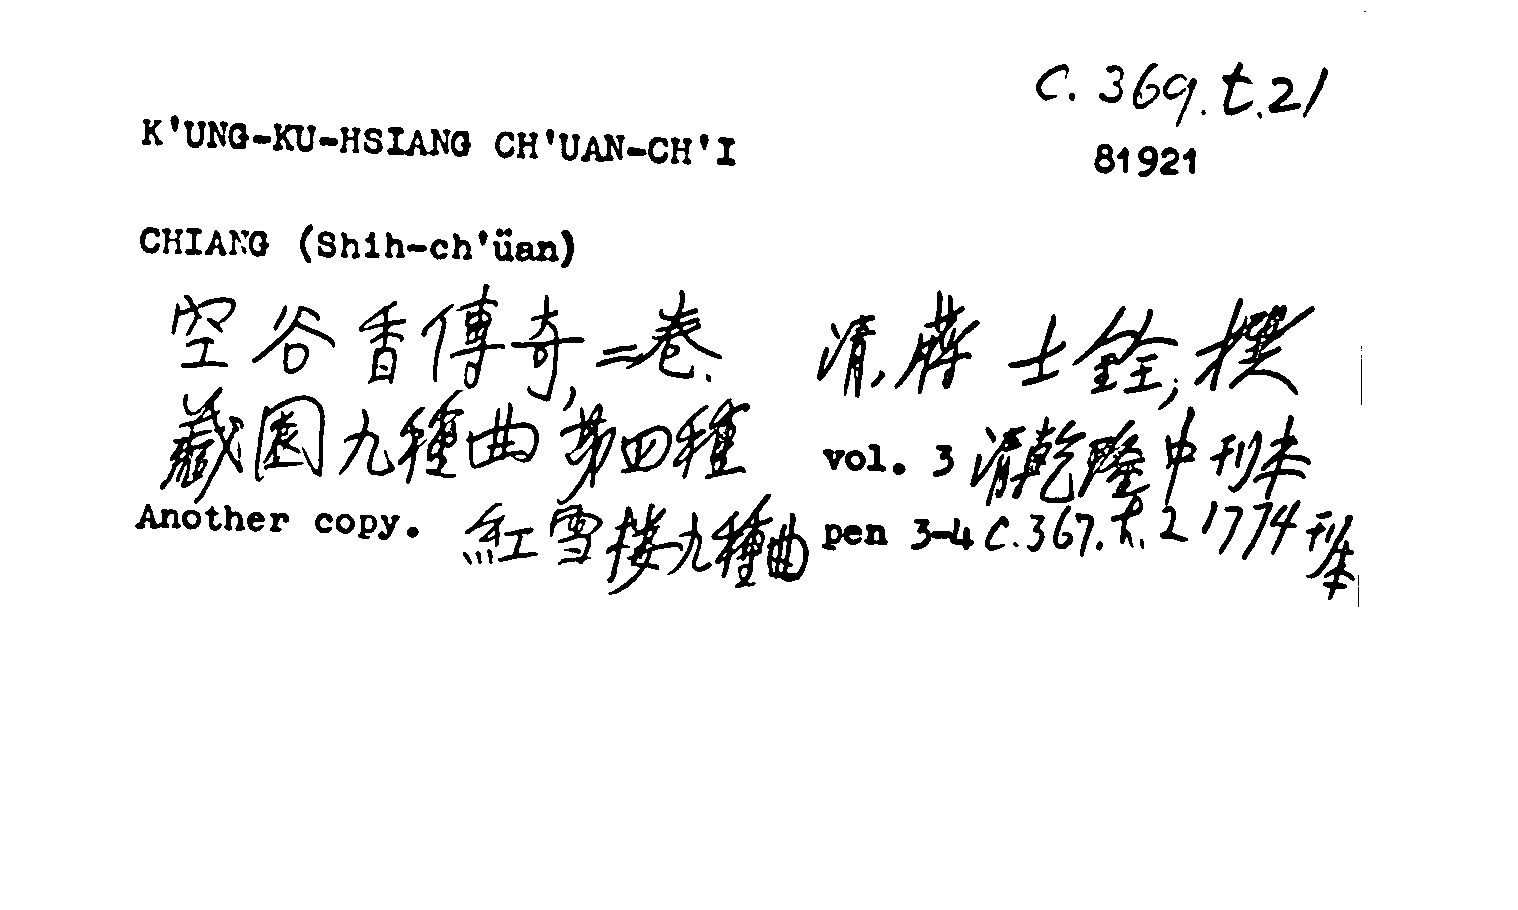 C. 369.t.21
K'UNG-KU-HSIANG CH'UAN-CH'I
81921
CHIANG (Shih-ch'üan)
空谷香傳奇,二卷. 清.蔣士銓,撰
藏園九種曲第四種 vol. 3 清乾隆中刊本
Another copy. 紅雪楼九種曲 pen 3-4 C.367.t.2 1774刊本